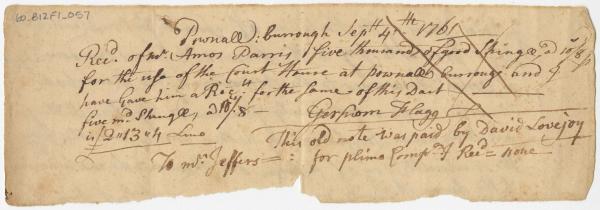 60.B12F1_057
Pownall:burrough Septt 4th 1761
Recd of mr Amos Parris five thousand of good Shingle, ad 10/8
for the use of the Court House at pownall burrough and I
have Gave him a Rect for the Same of this Dart
five md Shingle, ad 10/8 —
Gershom Flagg
is £2"13"4 Lmo
This old note was paid by David Lovejoy
To mr Jeffers
for plimo Compy Recd none